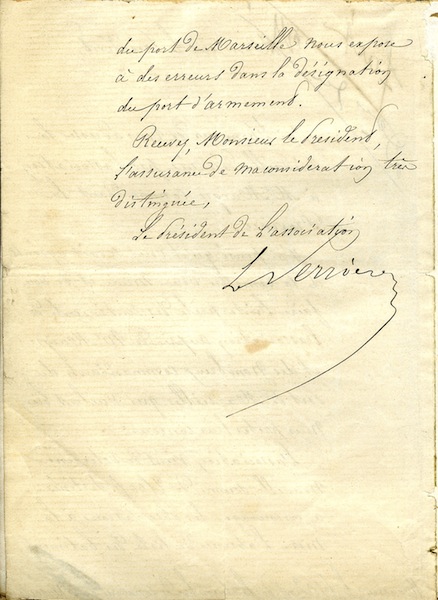 du port de Marseille nous expose
à des erreurs dans la désignation
du port d'armement.
Recevez, Monsieur le Président,
l'assurance de ma considération très
distinguée,
Le Président de l'association
Le Verrier